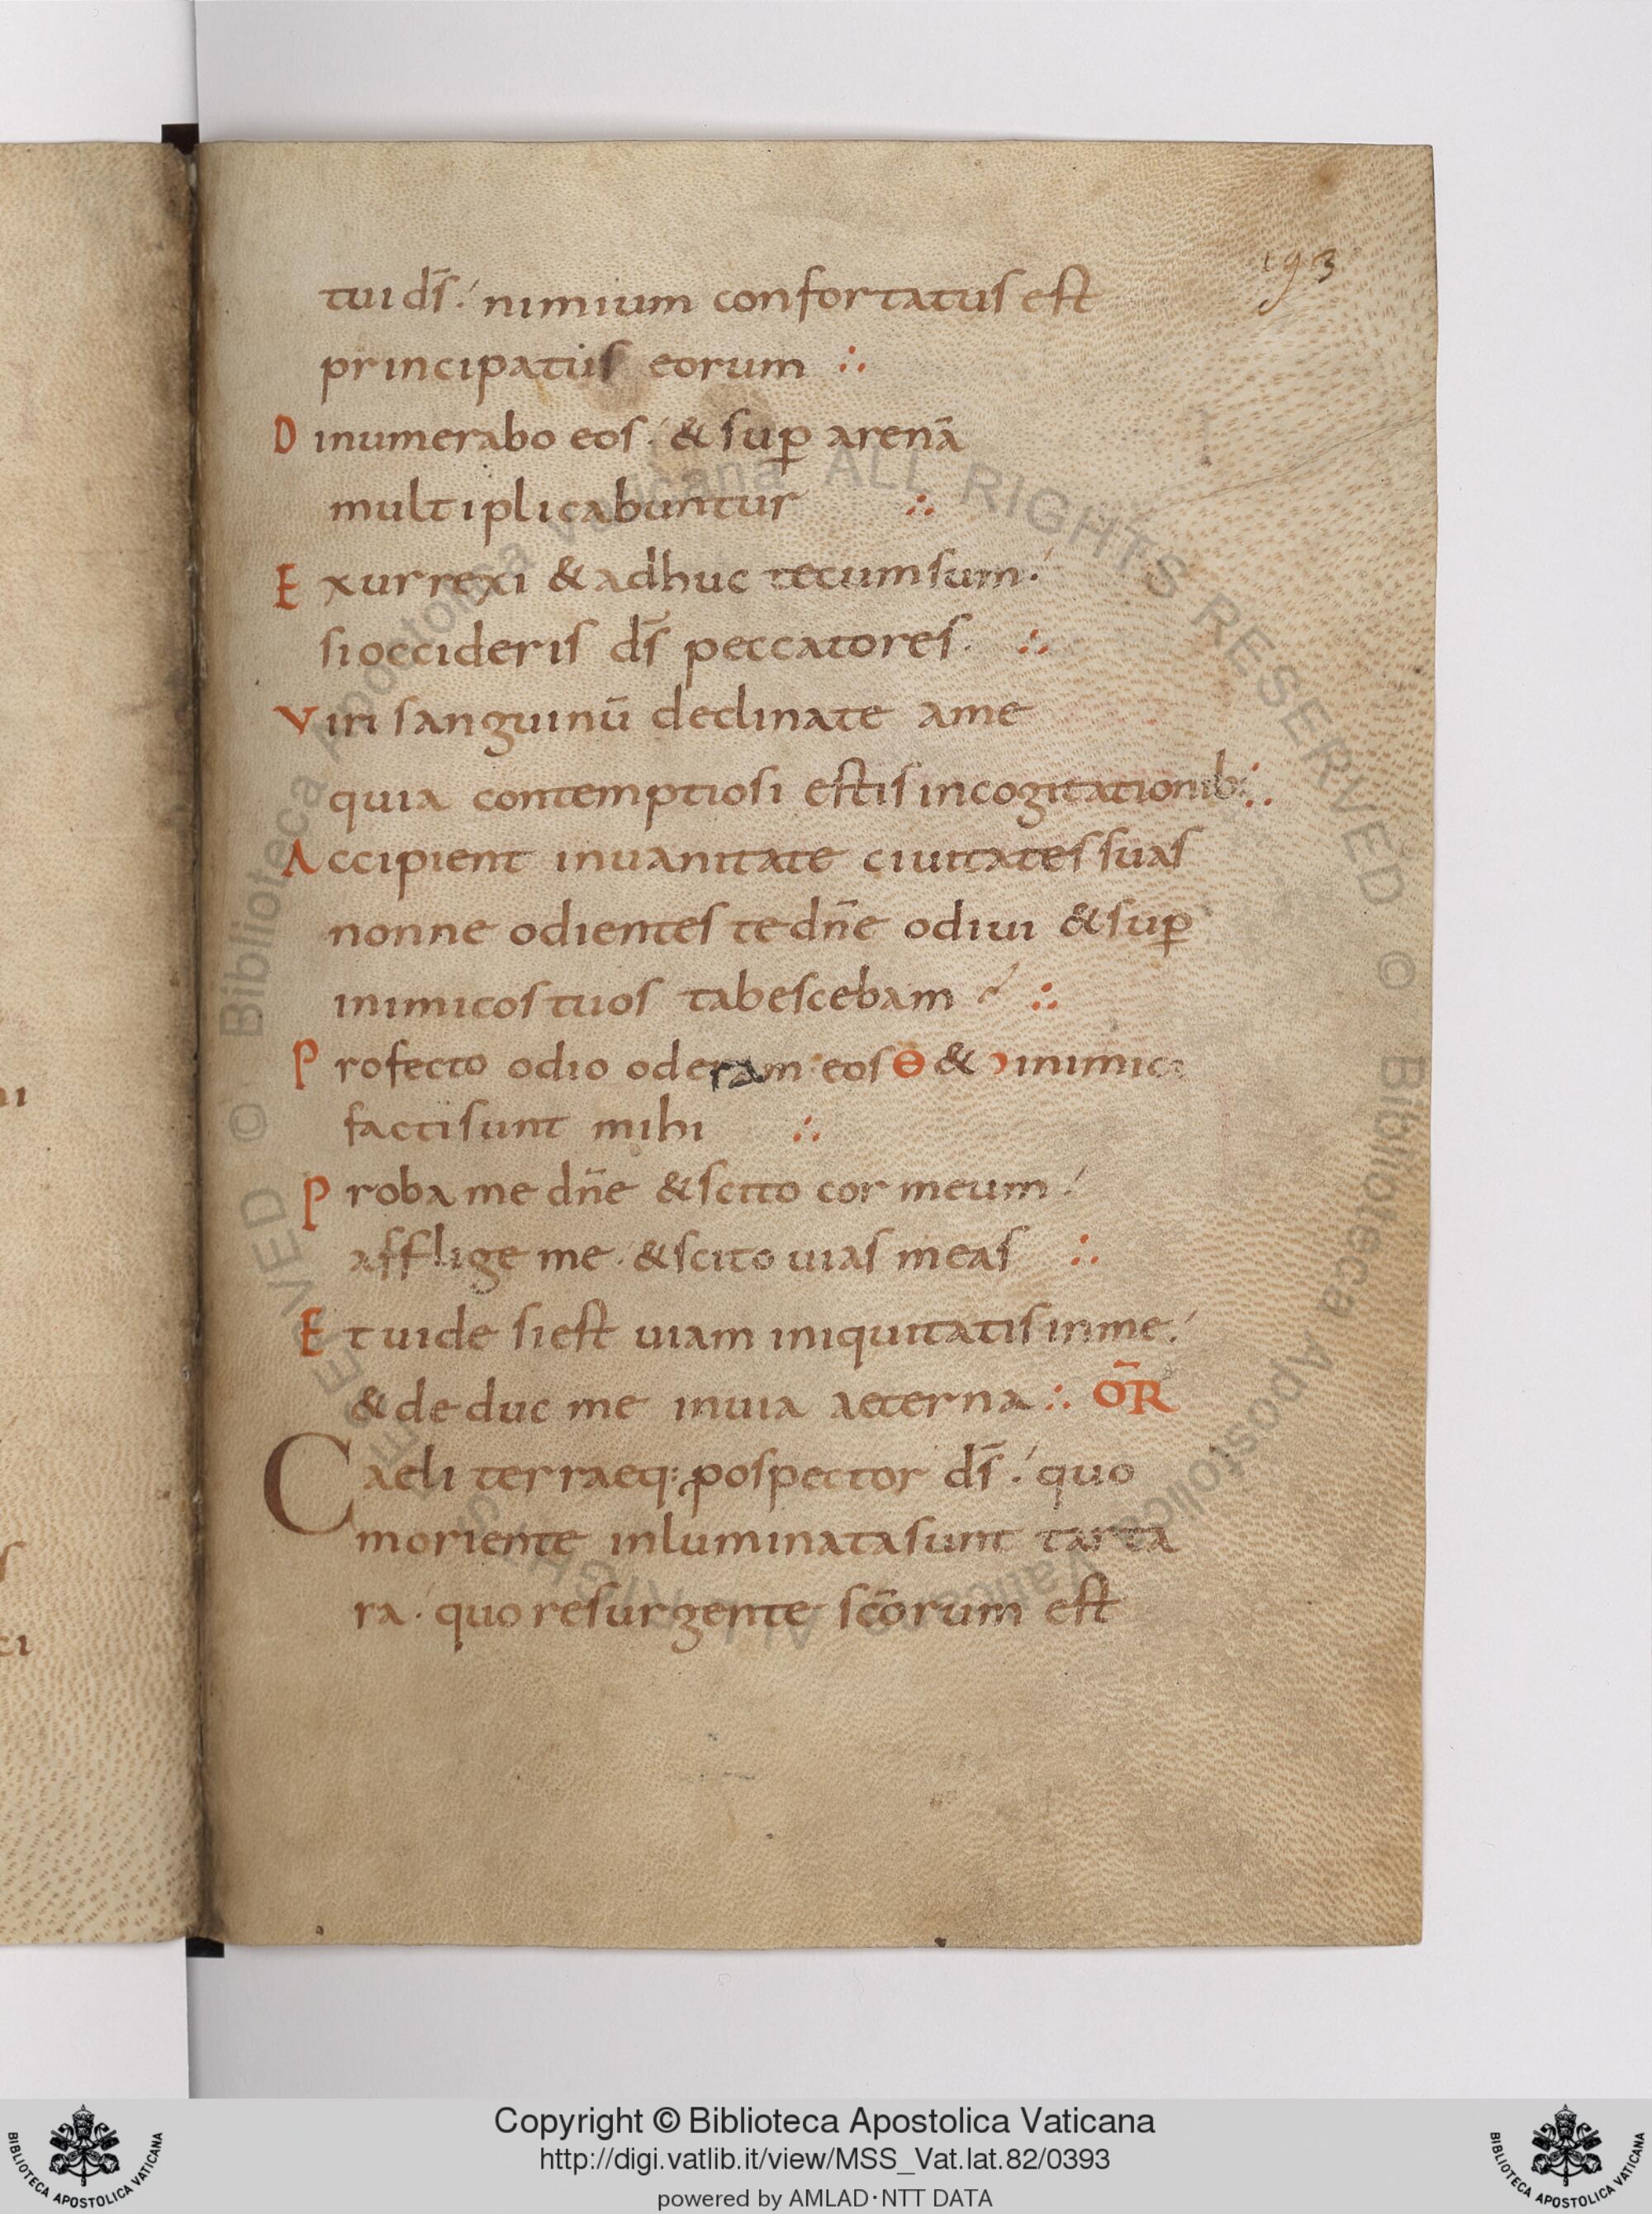 193
tui dS̄ nimium confortatus est
principatus eorum ∴
Dinumerabo eos & sup̱ arenā
multiplicabuntur ∴
Exurrexi & adhuc tecum sum
si occideris ds̄ peccatores ∴
Viri sanguinū declinate ame
quia contemptiosi estis incogitationib: ∴
Accipient inuanitate ciuitates suas
nonne odientes te dn̄e odiui & sup̱
inimicos tuos tabescebam ∴
Profecto odio oderam eos Θ & inimici
facti sunt mihi ∴
Proba me dn̄e & scito cor meum
afflige me · & scito uias meas ∴
Et uide si est uiam iniquitatis inme
& de duc me inuia aeterna ∴ ŌR
Caeli terraeq: ꝓospector ds̄ quo
moriente inluminata sunt tarta
ra · quo resurgente scōrum est
Biblioteca Apostolica Vaticana ALL RIGHTS RESERVED ©
Copyright © Biblioteca Apostolica Vaticana
http://digi.vatlib.it/view/MSS_Vat.lat.82/0393
powered by AMLAD·NTT DATA
BIBLIOTECA APOSTOLICA VATICANA
BIBLIOTECA APOSTOLICA VATICANA